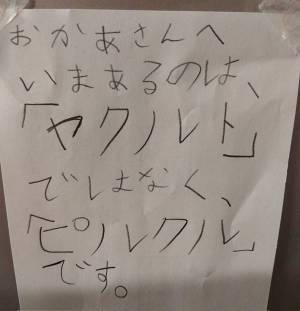 おかあさんへ
いまあるのは、
「ヤクルト」
ではなく、
「ピルクル」
です。